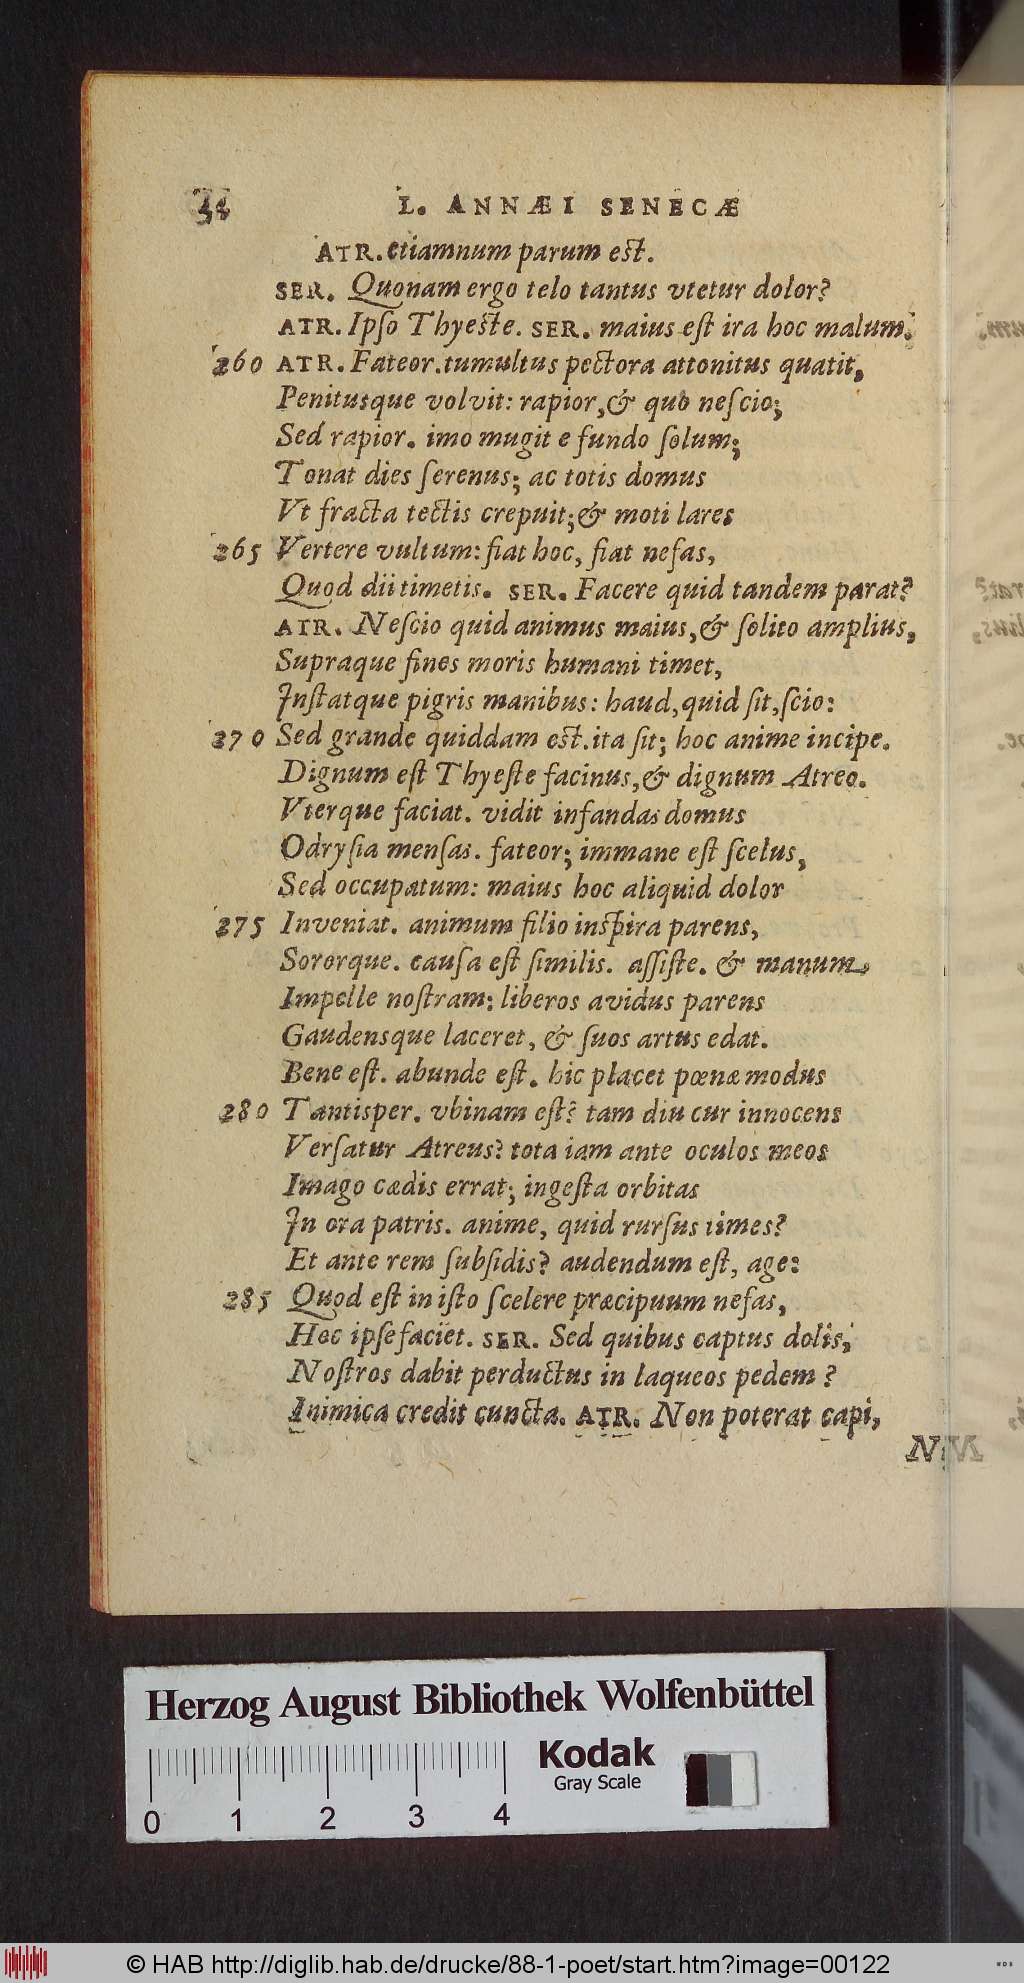 34 L. ANNÆI SENECÆ
ATR. etiamnum parum est.
SER. Quonam ergo telo tantus vtetur dolor?
ATR. Ipso Thyeste. SER. maius est ira hoc malum.
260 ATR. Fateor. tumultus pectora attonitus quatit,
Penitusque volvit: rapior, & quo nescio;
Sed rapior. imo mugit e fundo solum;
Tonat dies serenus; ac totis domus
Vt fracta tectis crepuit; & moti lares
265 Vertere vultum: fiat hoc, fiat nefas,
Quod dii timetis. SER. Facere quid tandem parat?
ATR. Nescio quid animus maius, & solito amplius,
Supraque fines moris humani timet,
Instatque pigris manibus: haud, quid sit, scio:
270 Sed grande quiddam est. ita sit; hoc anime incipe.
Dignum est Thyeste facinus, & dignum Atreo.
Vterque faciat. vidit infandas domus
Odrysia mensas. fateor; immane est scelus,
Sed occupatum: maius hoc aliquid dolor
275 Inveniat. animum filio inspira parens,
Sororque. causa est similis. assiste. & manum
Impelle nostram: liberos avidus parens
Gaudensque laceret, & suos artus edat.
Bene est. abunde est. hic placet pœnæ modus
280 Tantisper. vbinam est? tam diu cur innocens
Versatur Atreus? tota iam ante oculos meos
Imago cædis errat; ingesta orbitas
In ora patris. anime, quid rursus times?
Et ante rem subsidis? audendum est, age:
285 Quod est in isto scelere præcipuum nefas,
Hoc ipse faciet. SER. Sed quibus captus dolis,
Nostros dabit perductus in laqueos pedem?
Inimica credit cuncta. ATR. Non poterat capi,
Herzog August Bibliothek Wolfenbüttel
Kodak
Gray Scale
0 1 2 3 4
© HAB http://diglib.hab.de/drucke/88-1-poet/start.htm?image=00122